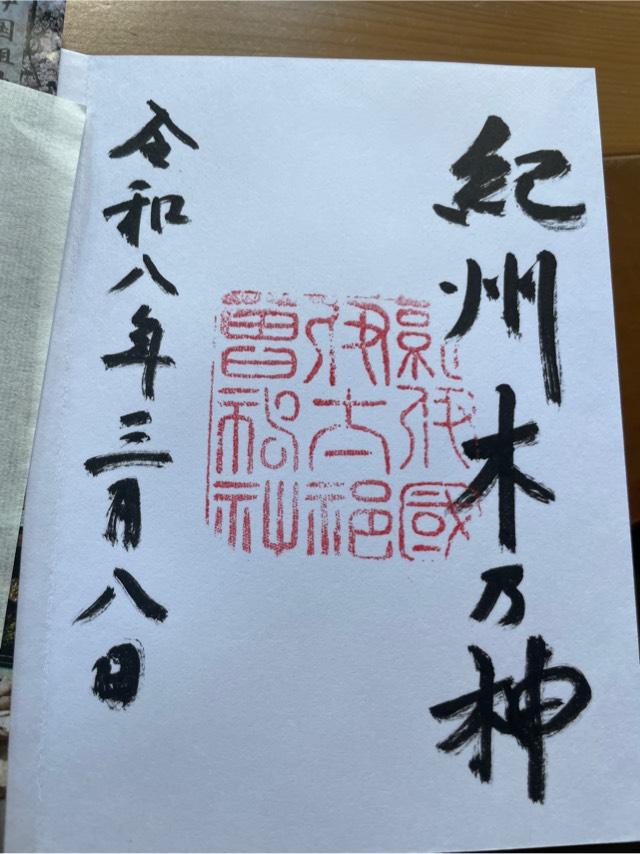 紀州木乃神
紀伊國
伊太祁
曽神社
令和八年三月八日